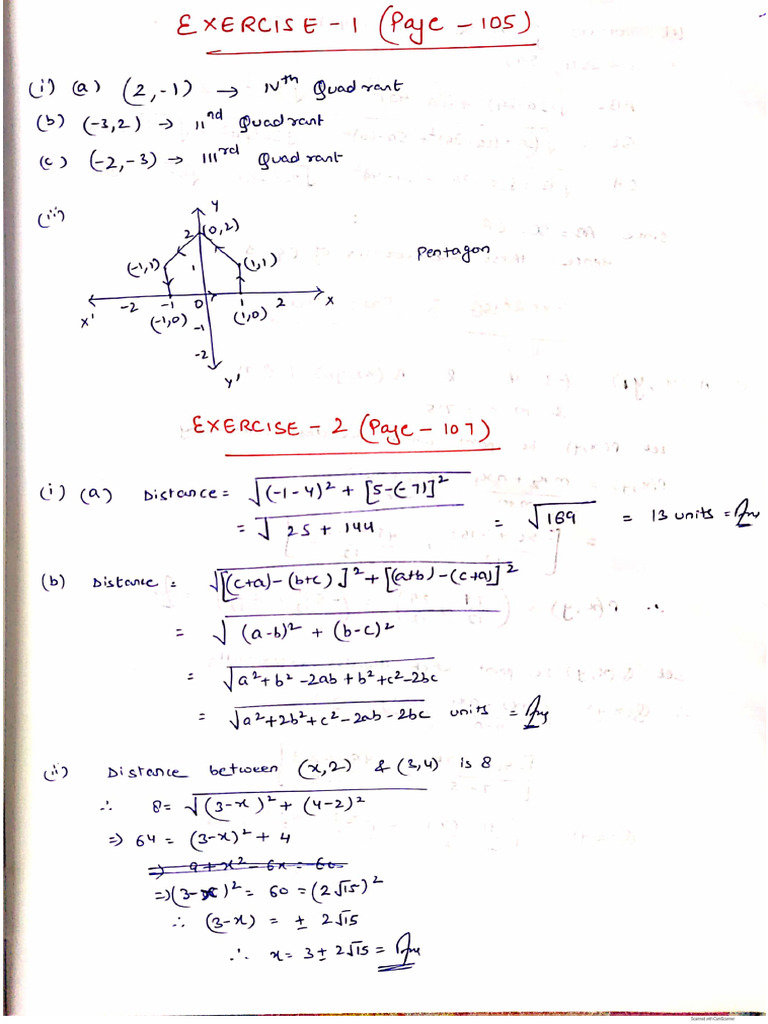 EXERCISE - 1 (Page - 105)
(i) (a) (2,-1) → IVth Quadrant
(b) (-3,2) → IInd Quadrant
(c) (-2,-3) → IIIrd Quadrant
(ii)
Y
2 (0,2)
(-1,1) 1 (1,1)
Pentagon
X' -2 -1 0 1 2 X
(-1,0) -1 (1,0)
-2
Y'
EXERCISE - 2 (Page - 107)
(i) (a) Distance = √(-1-4)² + [5-(-7)]²
= √25 + 144 = √169 = 13 units = Ans
(b) Distance = √[(c+a)-(b+c)]² + [(a+b)-(c+a)]²
= √(a-b)² + (b-c)²
= √a²+b²-2ab+b²+c²-2bc
= √a²+2b²+c²-2ab-2bc units = Ans
(ii) Distance between (x,2) & (3,4) is 8
∴ 8 = √(3-x)² + (4-2)²
⇒ 64 = (3-x)² + 4
⇒ 9 + x² - 6x = 60
⇒ (3-x)² = 60 = (2√15)²
∴ (3-x) = ± 2√15
∴ x = 3 ± 2√15 = Ans
Scanned with CamScanner